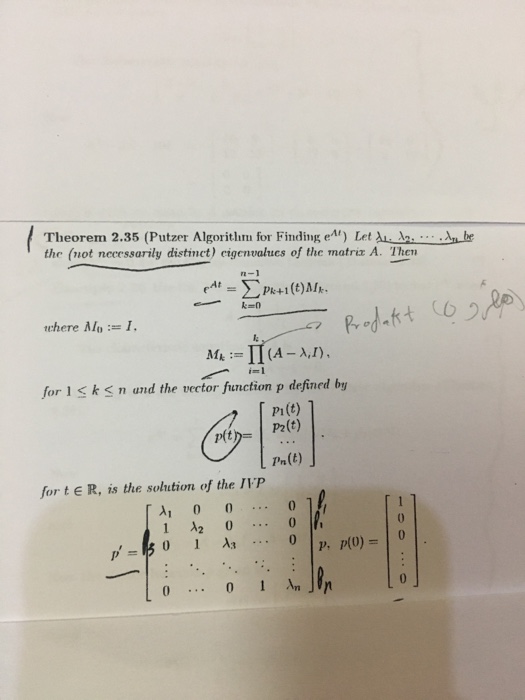 Theorem 2.35 (Putzer Algorithm for Finding e^{At}) Let λ₁, λ₂, ⋯, λₙ be
the (not necessarily distinct) eigenvalues of the matrix A. Then
e^{At} = ∑_{k=0}^{n−1} p_{k+1}(t)M_k,
where M₀ := I,
Prodakt
M_k := ∏_{i=1}^{k} (A − λ_i I),
for 1 ≤ k ≤ n and the vector function p defined by
p(t) = [ p₁(t)
p₂(t)
⋯
pₙ(t) ],
for t ∈ ℝ, is the solution of the IVP
p′ = [ λ₁ 0 0 ⋯ 0
1 λ₂ 0 ⋯ 0
0 1 λ₃ ⋯ 0
⋮ ⋱ ⋱ ⋱ ⋮
0 ⋯ 0 1 λₙ ] p, p(0) = [ 1
0
0
⋮
0 ].
p₁
pₙ